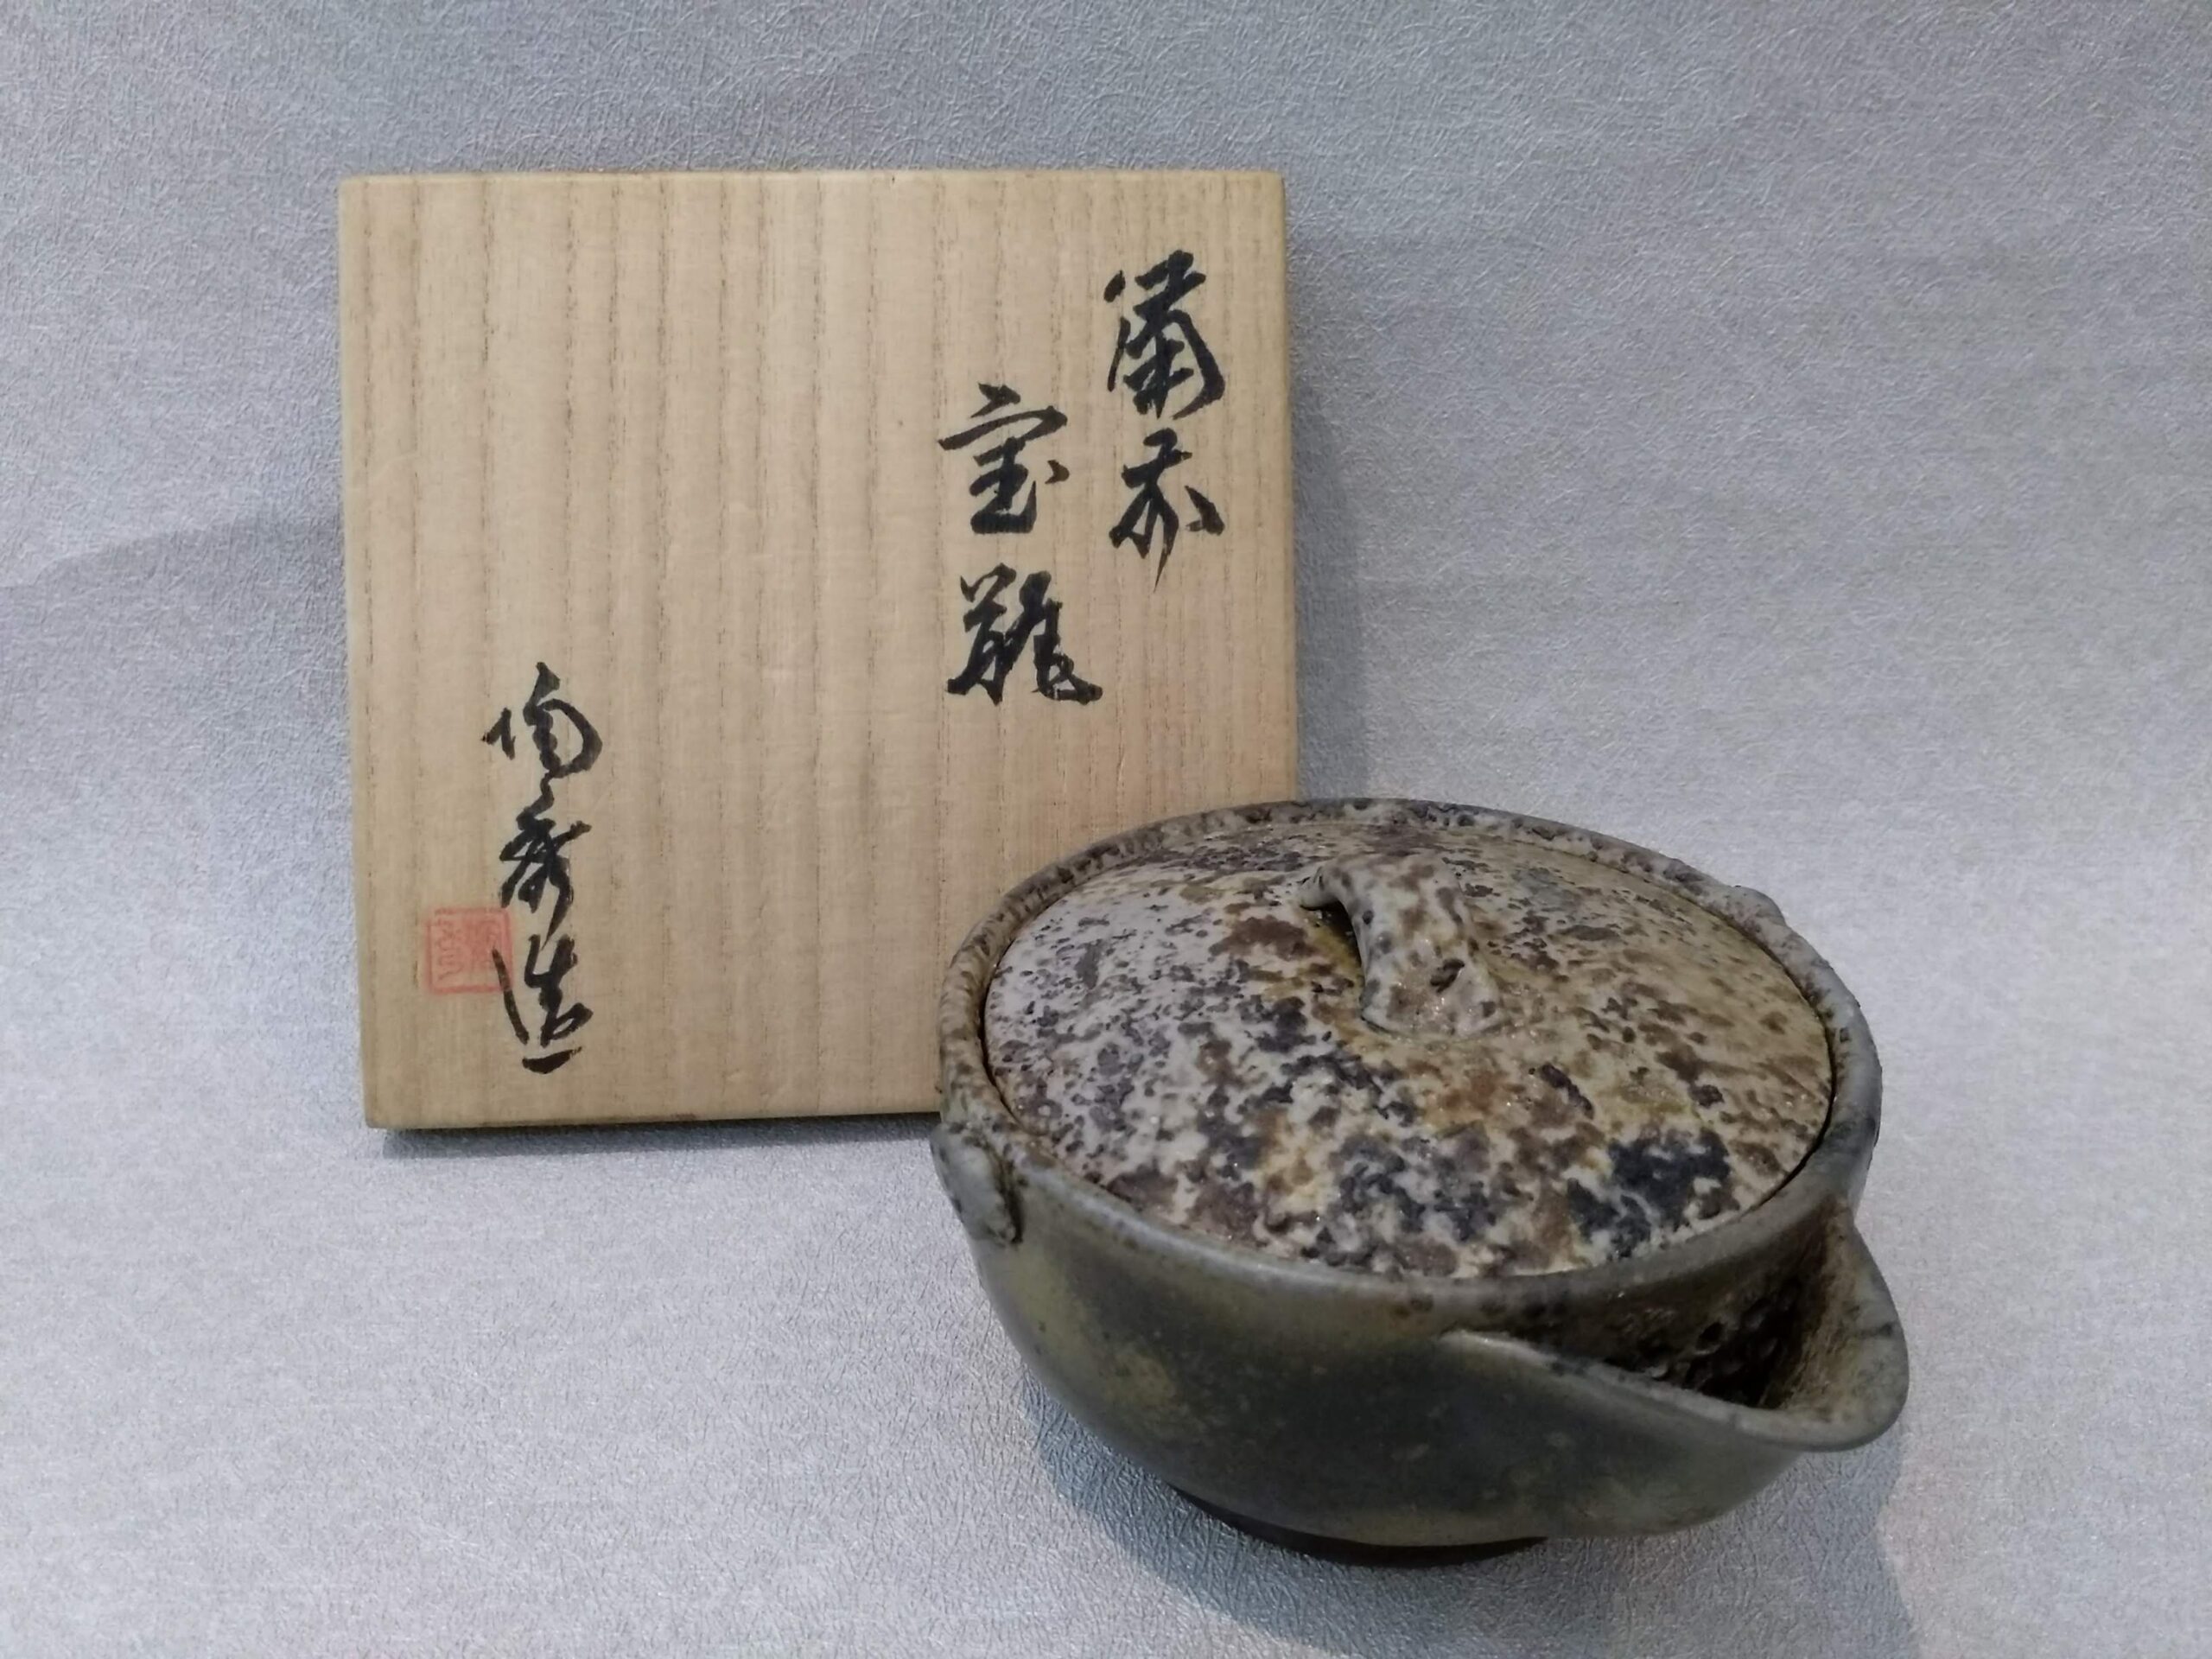 備前
宝瓶
陶秀造